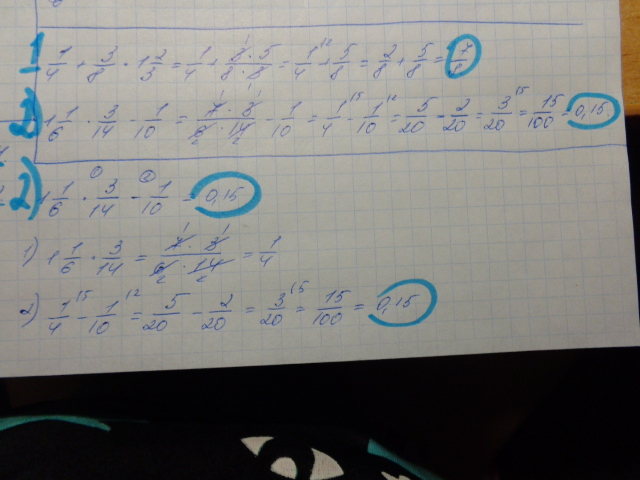 1 1/4 + 3/8 · 1 2/3 = 1/4 + 3·5/8·3 = 1/4 + 5/8 = 2/8 + 5/8 = 7/8
2) 1 1/6 · 3/14 - 1/10 = 7·3/6·14 - 1/10 = 1/4 - 1/10 = 5/20 - 2/20 = 3/20 = 15/100 = 0,15.
2) 1 1/6 · 3/14 - 1/10 = 0,15
1) 1 1/6 · 3/14 = 7·3/6·14 = 1/4
2) 1/4 - 1/10 = 5/20 - 2/20 = 3/20 = 15/100 = 0,15